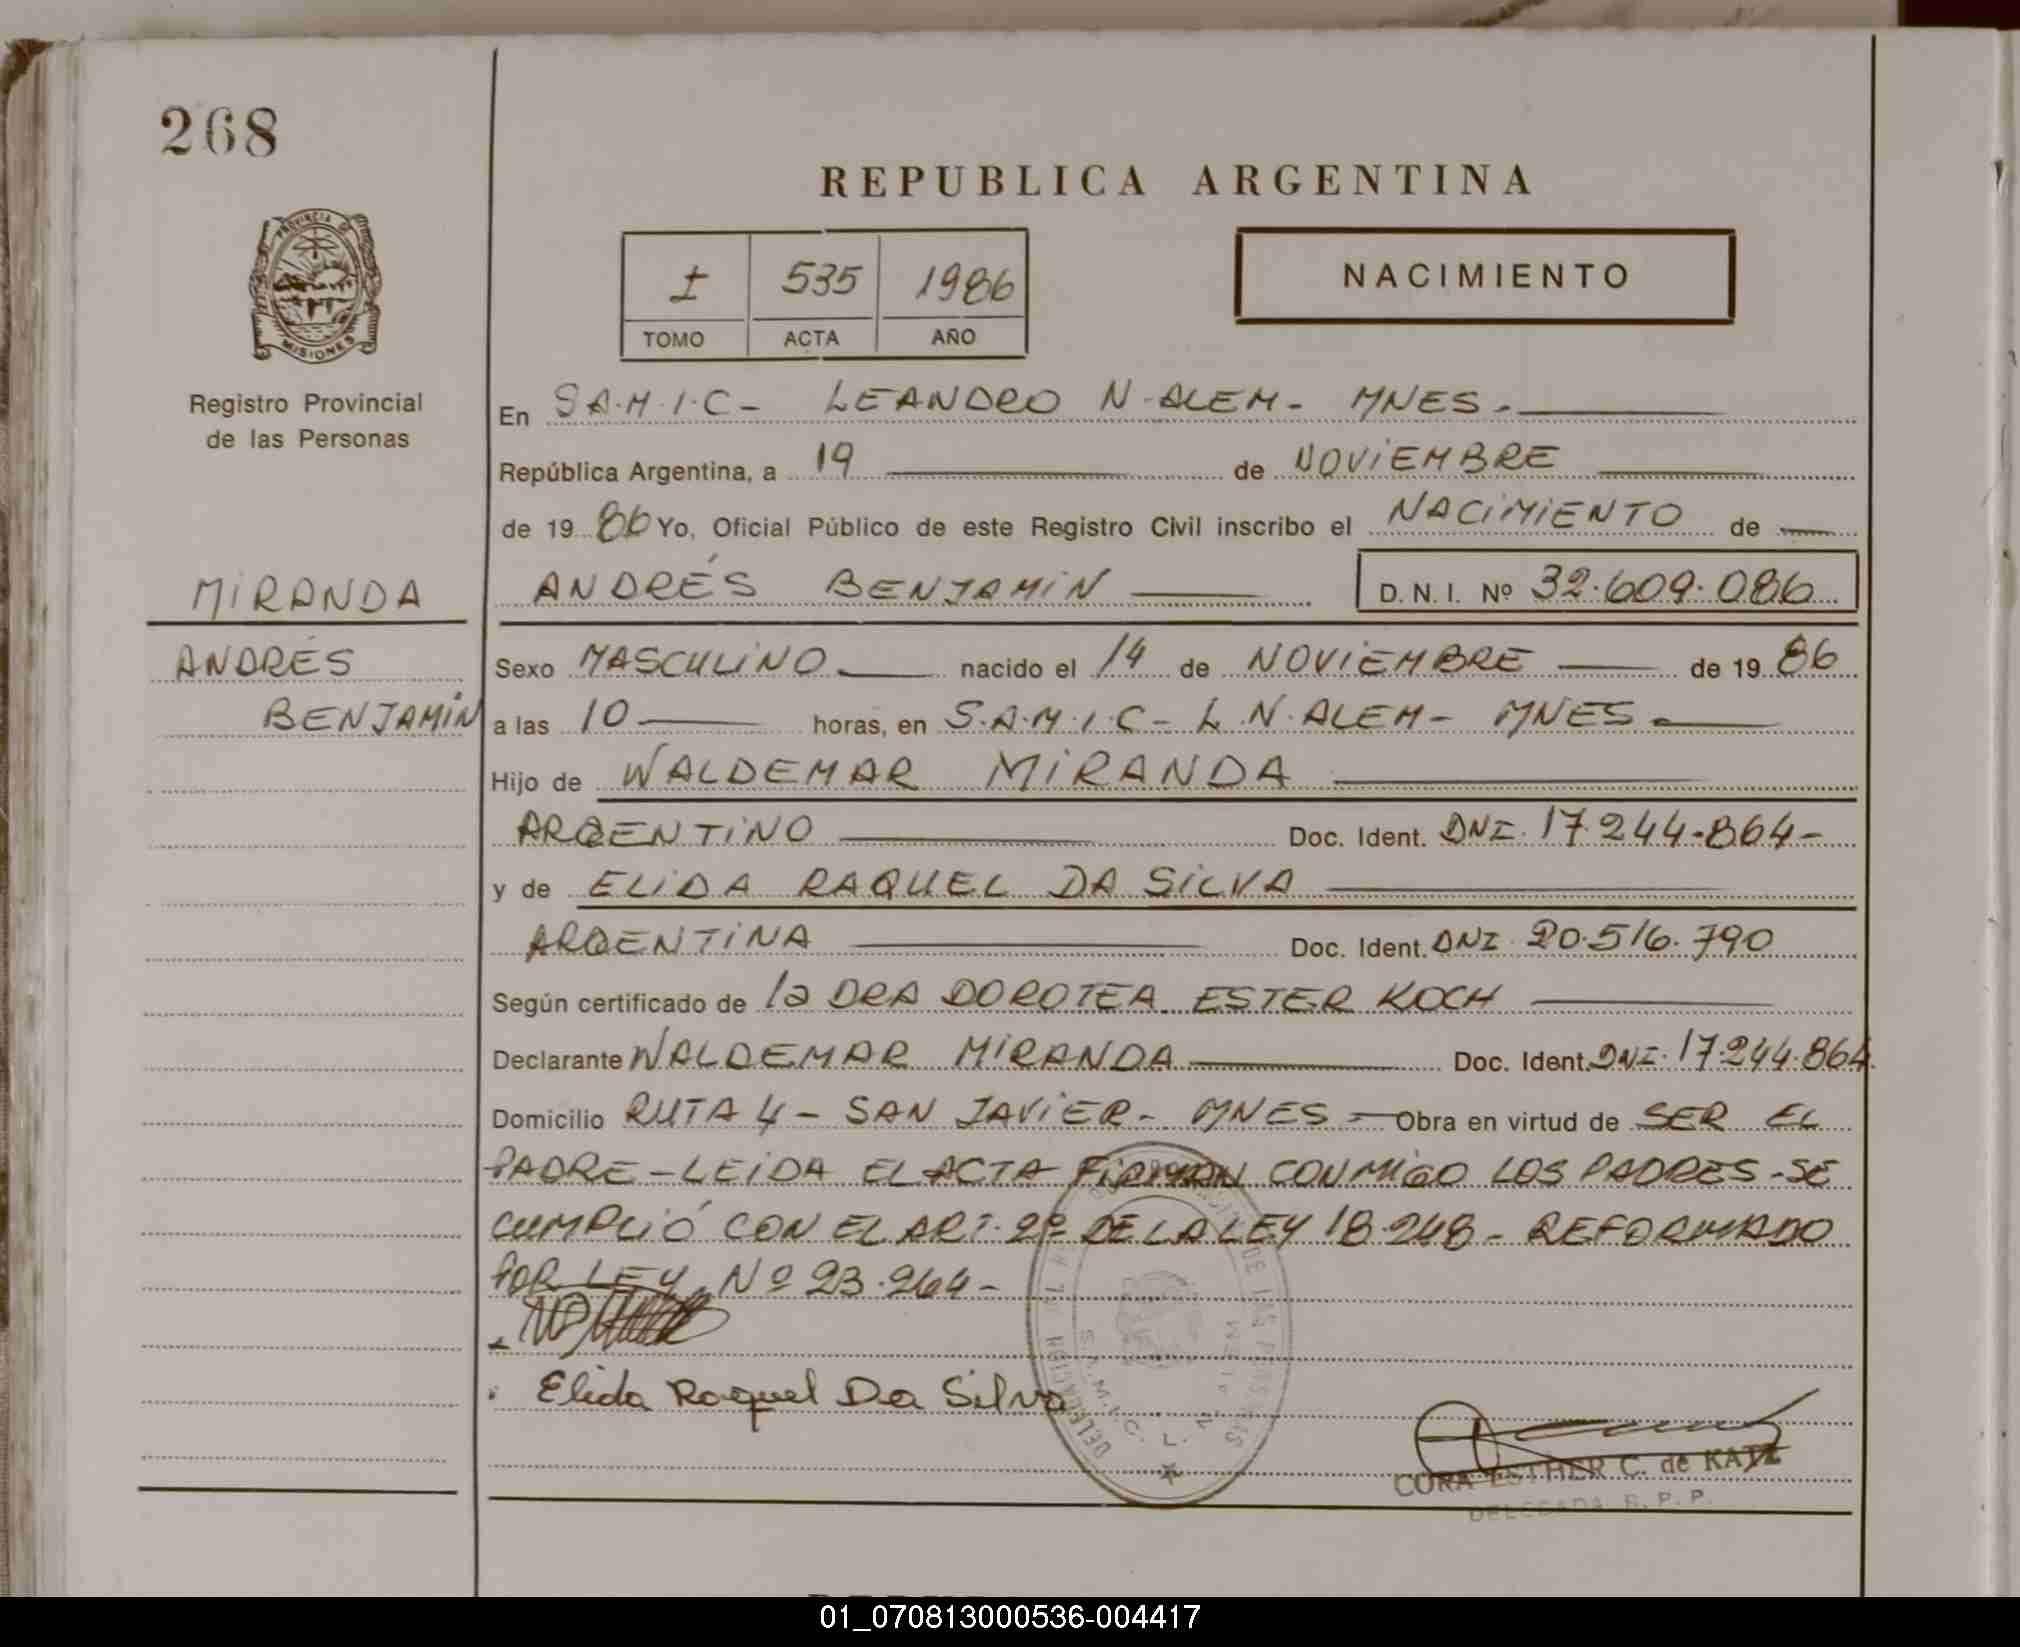 268
REPUBLICA ARGENTINA
PROVINCIA DE
MISIONES
Registro Provincial
de las Personas
I 535 1986
TOMO ACTA AÑO
NACIMIENTO
En S.A.M.I.C- LEANDRO N-ALEM- MNES.
República Argentina, a 19 de NOVIEMBRE
de 1986 Yo, Oficial Público de este Registro Civil inscribo el NACIMIENTO de
MIRANDA
ANDRÉS BENJAMIN D.N.I. Nº 32.609.086
ANDRÉS
BENJAMIN
Sexo MASCULINO nacido el 14 de NOVIEMBRE de 1986
a las 10 horas, en S.A.M.I.C- L.N.ALEM- MNES
Hijo de WALDEMAR MIRANDA
ARGENTINO Doc. Ident. DNI. 17.244-864-
y de ELIDA RAQUEL DA SILVA
ARGENTINA Doc. Ident. DNI. 20.516.790
Según certificado de la DRA DOROTEA ESTER KOCH
Declarante WALDEMAR MIRANDA Doc. Ident. DNI. 17.244.864.
Domicilio RUTA 4- SAN JAVIER- MNES- Obra en virtud de SER EL
PADRE-LEIDA EL ACTA FIRMAN CONMIGO LOS PADRES-SE
CUMPLIÓ CON EL ART. 2º DE LA LEY 18.248- REFORMADO
POR LEY Nº 23.264-
Elida Raquel Da Silva
DELEGACION
DE LAS PERSONAS
S.A.M.I.C. L. N.
CORA ESTHER C. de KATZ
DELEGADA R.P.P.
01_070813000536-004417